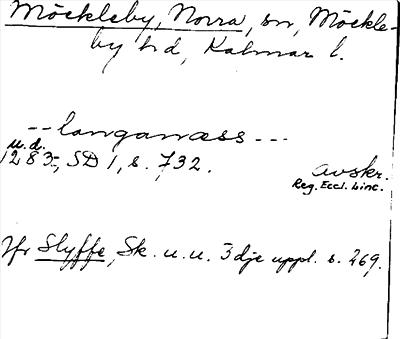 Möckleby, Norra, sn, Möckle-
by hd, Kalmar l.
-- langanæss ---
u.d.
1283-, SD 1, s. 732.
avskr.
Reg. Eccl. Linc.
Jfr Slyffe, Sk. u.u. 3dje uppl. s. 269.